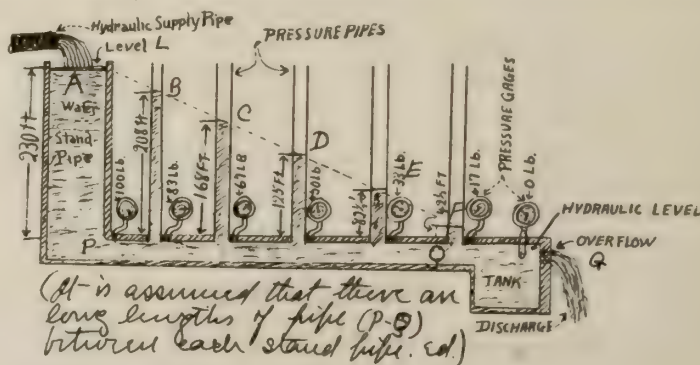 Hydraulic Supply Pipe
Level L
PRESSURE PIPES
A
Water
Stand-
Pipe
230 ft
B
C
D
E
208 ft
168 FT
125 FT
82½'
42½ FT
100 Lb.
83 Lb.
67 LB
50 Lb.
33 Lb.
17 Lb.
0 Lb.
PRESSURE GAGES
HYDRAULIC LEVEL
OVERFLOW
P
O
Q
TANK
DISCHARGE
(It is assumed that there are
long lengths of pipe (P-Q)
between each stand pipe. Ed.)